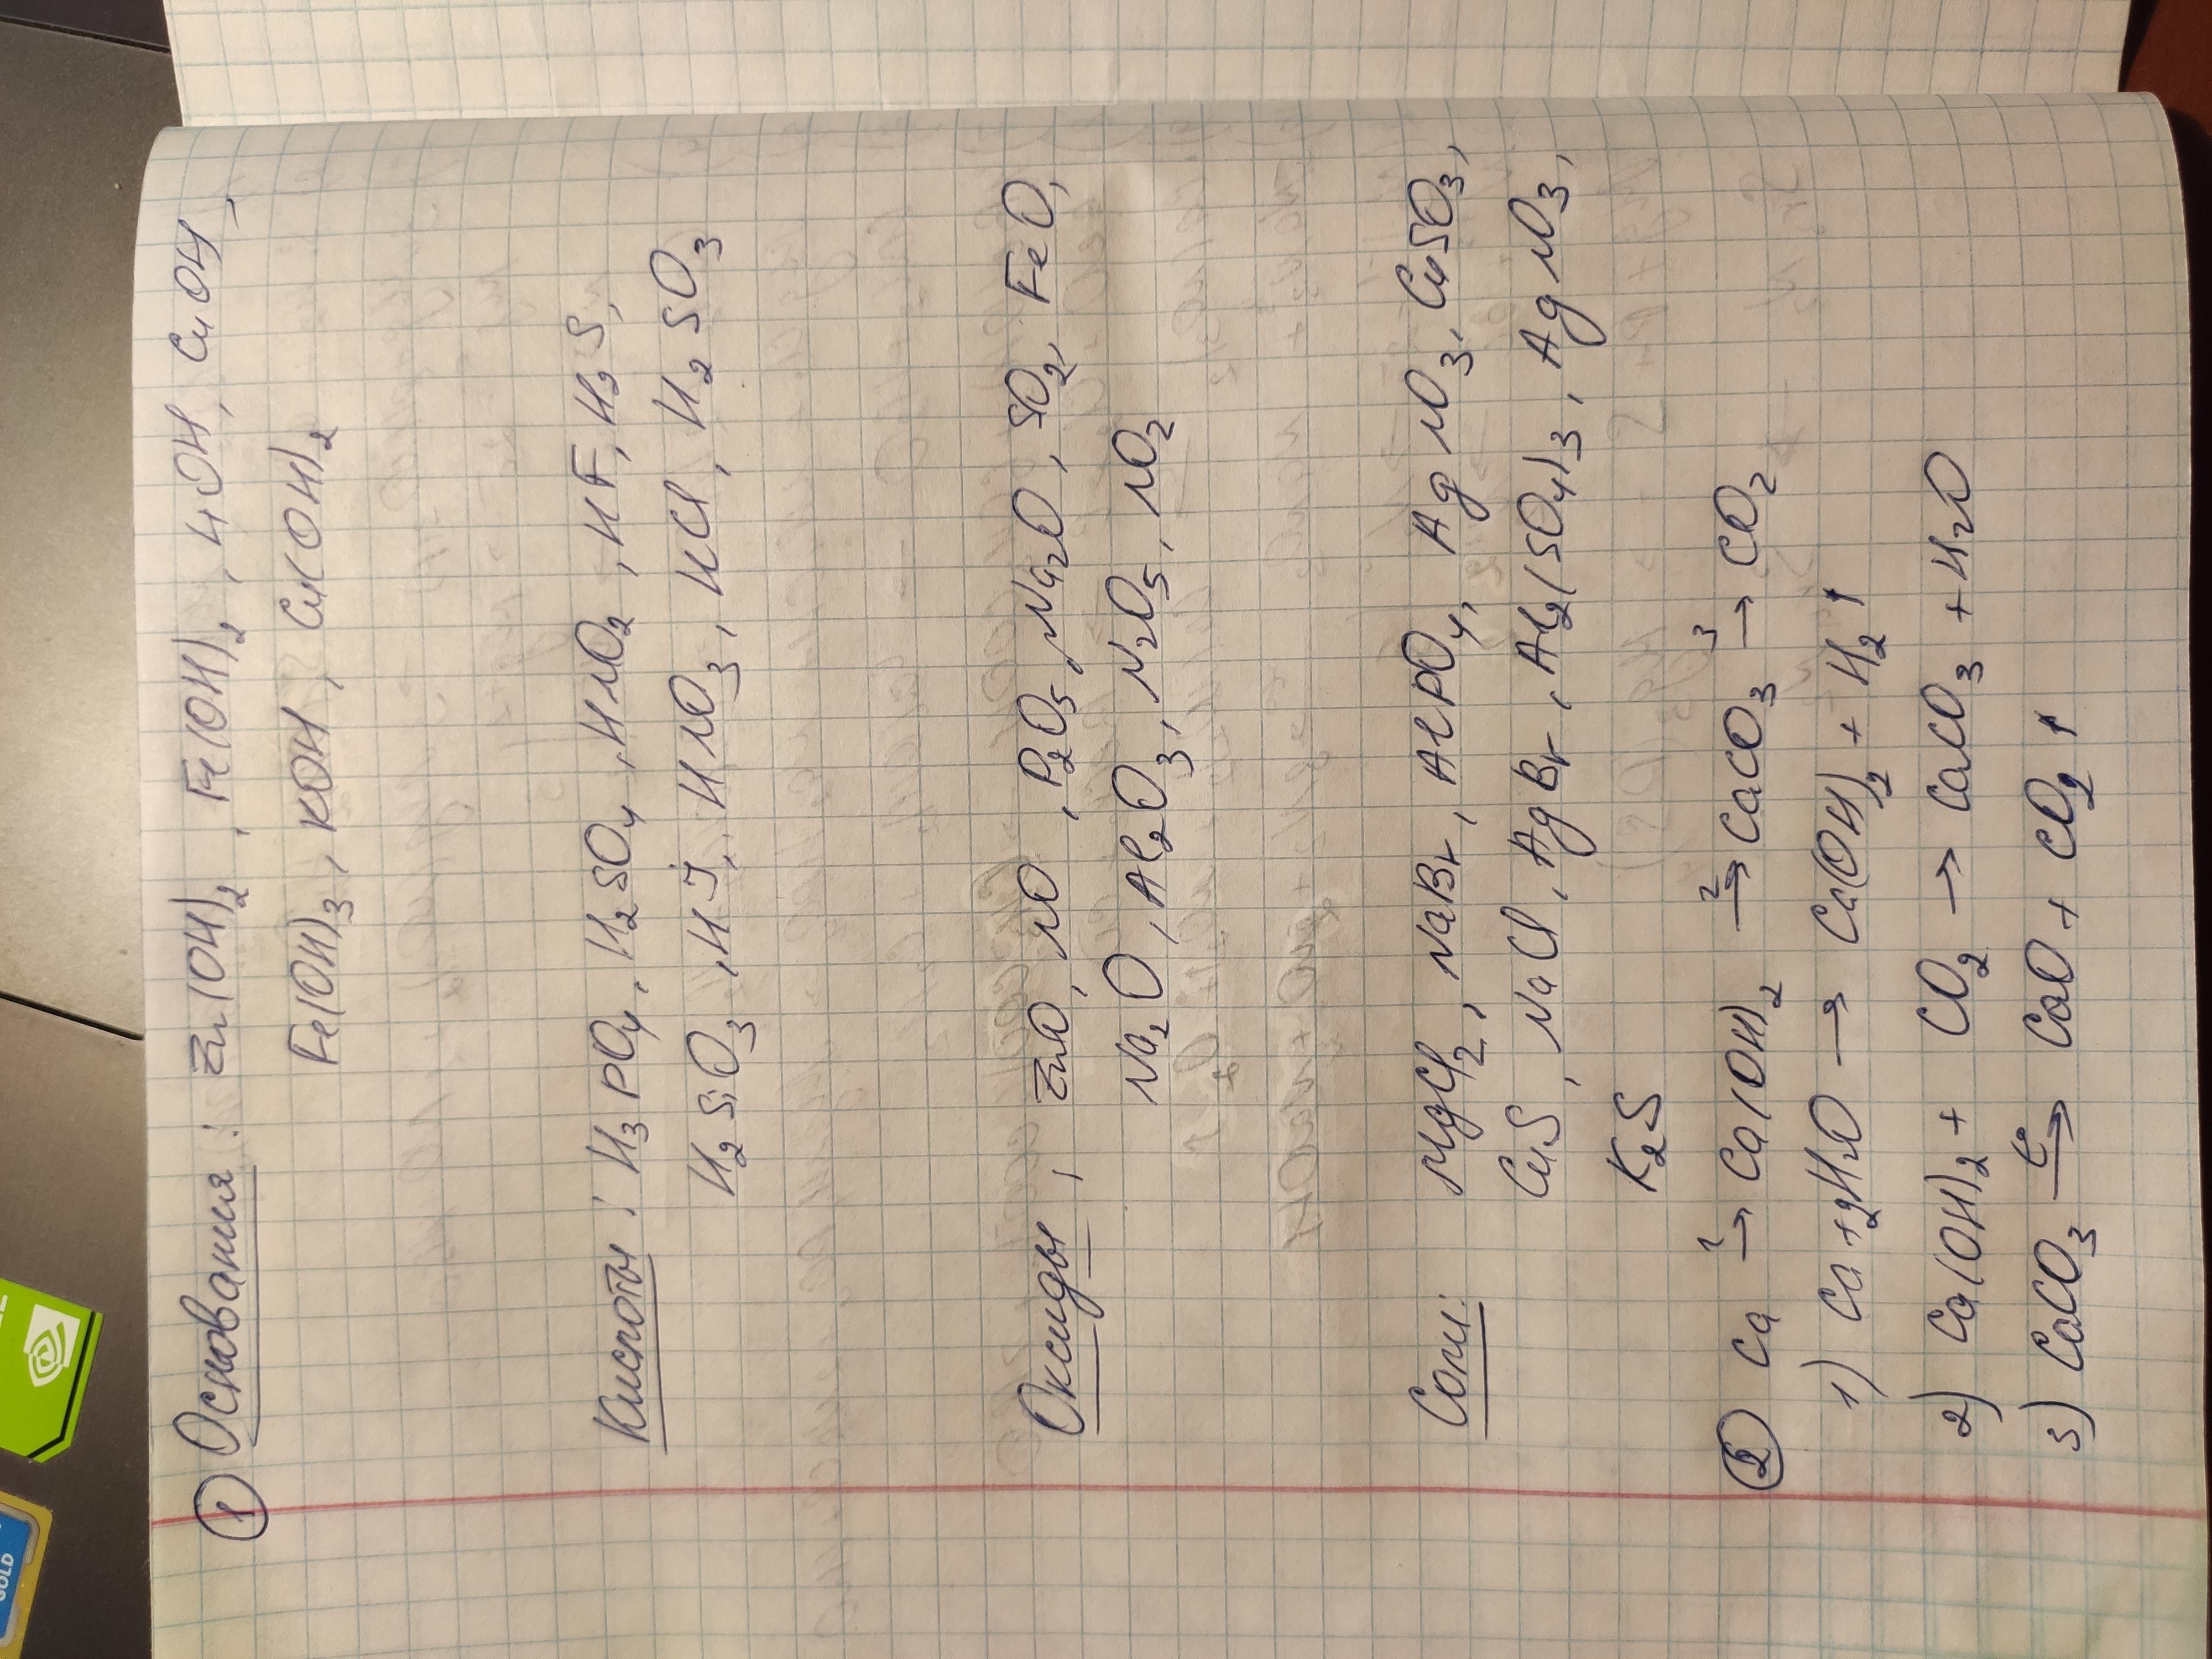 ① Основания: Zn(OH)2, Fe(OH)2, LiOH, CuOH,
Fe(OH)3, KOH, Cu(OH)2
Кислоты: H3PO4, H2SO4, HNO2, HF, H2S,
H2SiO3, HJ, HNO3, HCl, H2SO3
Оксиды: ZnO, NO, P2O5, Na2O, SO2, FeO,
Na2O, Al2O3, N2O5, NO2
Соли: MgCl2, NaBr, AlPO4, AgNO3, CuSO3,
CuS, NaCl, AgBr, Al2(SO4)3, AgNO3,
K2S
② Ca 1→ Ca(OH)2 2→ CaCO3 3→ CO2
1) Ca + 2H2O → Ca(OH)2 + H2↑
2) Ca(OH)2 + CO2 → CaCO3 + H2O
3) CaCO3 t°→ CaO + CO2↑
GOLD